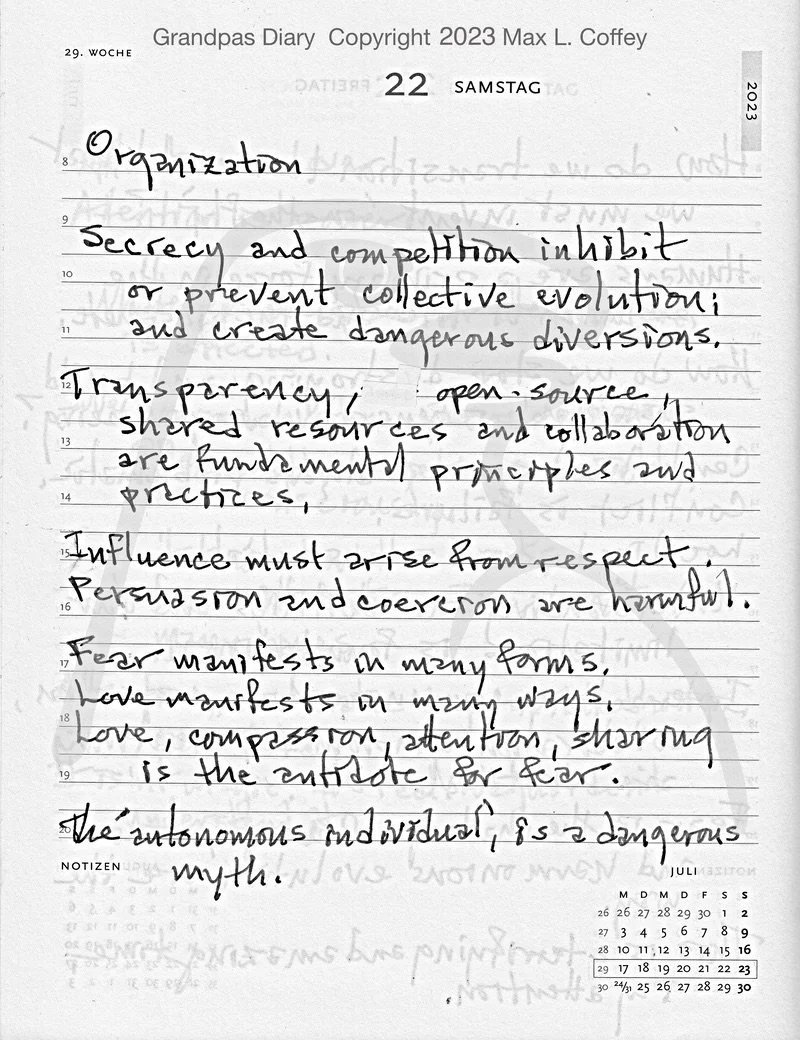 Grandpas Diary Copyright 2023 Max L. Coffey
29. WOCHE
22 SAMSTAG
2023
8 Organization
9
Secrecy and competition inhibit
10 or prevent collective evolution;
11 and create dangerous diversions.
12 Transparency, open-source,
13 shared resources and collaboration
are fundamental principles and
14 practices,
15 Influence must arise from respect.
16 Persuasion and coercion are harmful.
17 Fear manifests in many forms.
Love manifests in many ways.
18 Love, compassion, attention, sharing
19 is the antidote for fear.
20 The 'autonomous individual', is a dangerous
myth.
NOTIZEN
JULI
M D M D F S S
26 26 27 28 29 30 1 2
27 3 4 5 6 7 8 9
28 10 11 12 13 14 15 16
29 17 18 19 20 21 22 23
30 24/31 25 26 27 28 29 30